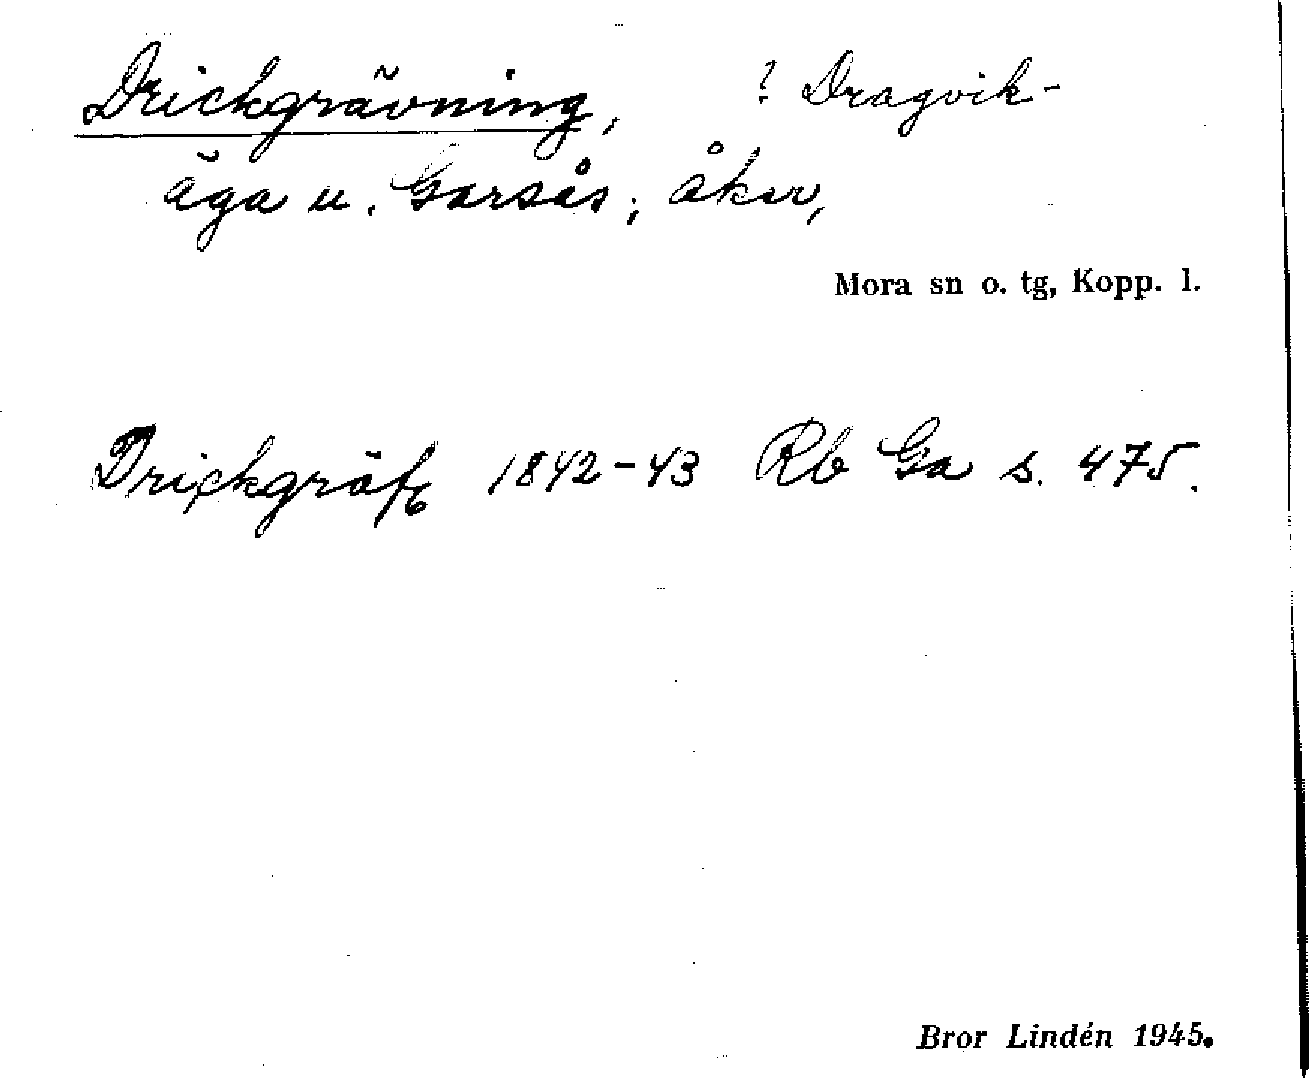 Drickgrävning, ? Dragvik-
äga u. Garsås; åker,
Mora sn o. tg, Kopp. l.
Drickgräfn 1842-43 Rb Ga s. 475.
Bror Lindén 1945.